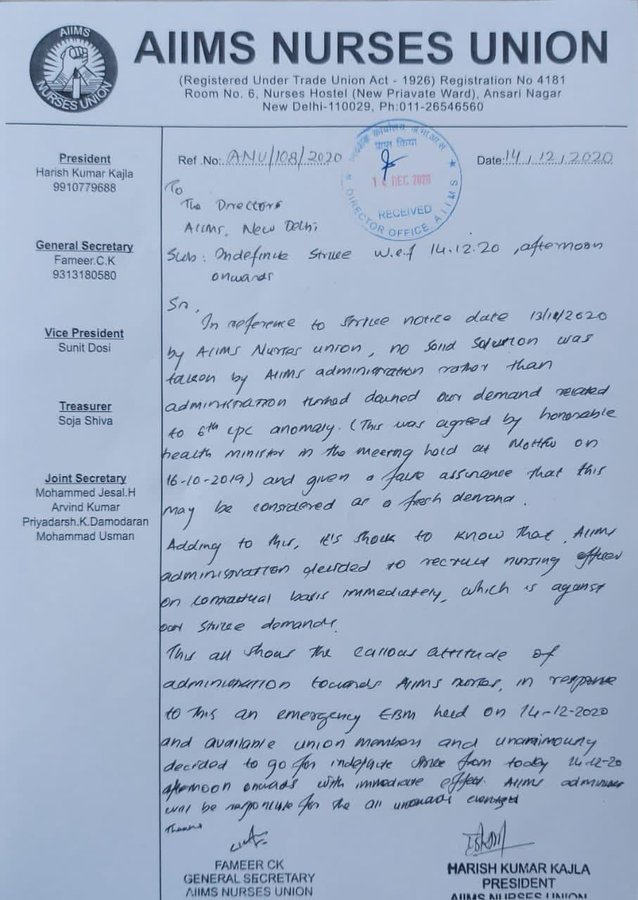 AIIMS
NURSES UNION
AIIMS NURSES UNION
(Registered Under Trade Union Act - 1926) Registration No 4181
Room No. 6, Nurses Hostel (New Priavate Ward), Ansari Nagar
New Delhi-110029, Ph:011-26546560
President
Harish Kumar Kajla
9910779688
General Secretary
Fameer.C.K
9313180580
Vice President
Sunit Dosi
Treasurer
Soja Shiva
Joint Secretary
Mohammed Jesal.H
Arvind Kumar
Priyadarsh.K.Damodaran
Mohammad Usman
Ref .No: ANU/108/2020
Date: 14, 12, 2020
प्राप्त किया
DEC 2020
RECEIVED
DIRECTOR OFFICE, AIIMS
To
The Directors
AIIMS, New Delhi
Sub: Indefinite Strike w.e.f 14.12.20, afternoon
onwards
Sir,
In reference to strike notice date 13/11/2020
by AIIMS Nurses union, no solid solution was
taken by AIIMS administration rather than
administration turned downed our demand related
to 6th cpc anomaly. (This was agreed by honorable
health minister in the meeting held at MoHFW on
16-10-2019) and given a false assurance that this
may be considered as a fresh demand.
Adding to this, it's shock to know that, AIIMS
administration decided to recruit nursing officer
on contractual basis immediately, which is against
our strike demands.
This all shows the callous attitude of
administration towards AIIMS nurses, in response
to this an emergency EBM held on 14-12-2020
and available union members and unanimously
decided to go for indefinite strike from today 14-12-20
afternoon onwards with immediate effect. AIIMS
will be responsible for the all
Thanks
FAMEER CK
GENERAL SECRETARY
AIIMS NURSES UNION
HARISH KUMAR KAJLA
PRESIDENT
AIIMS NURSES UNION